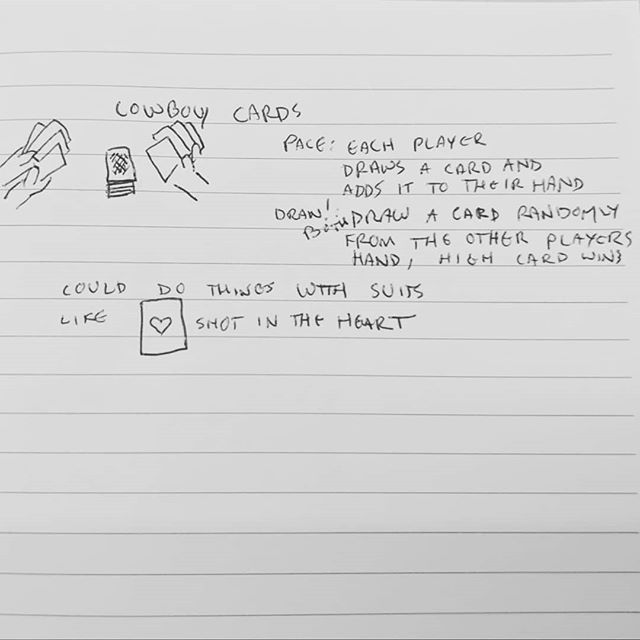 COWBOY CARDS
PACE: EACH PLAYER
DRAWS A CARD AND
ADDS IT TO THEIR HAND
DRAW! BOTH DRAW A CARD RANDOMLY
FROM THE OTHER PLAYERS
HAND, HIGH CARD WINS
COULD DO THINGS WITH SUITS
LIKE SHOT IN THE HEART